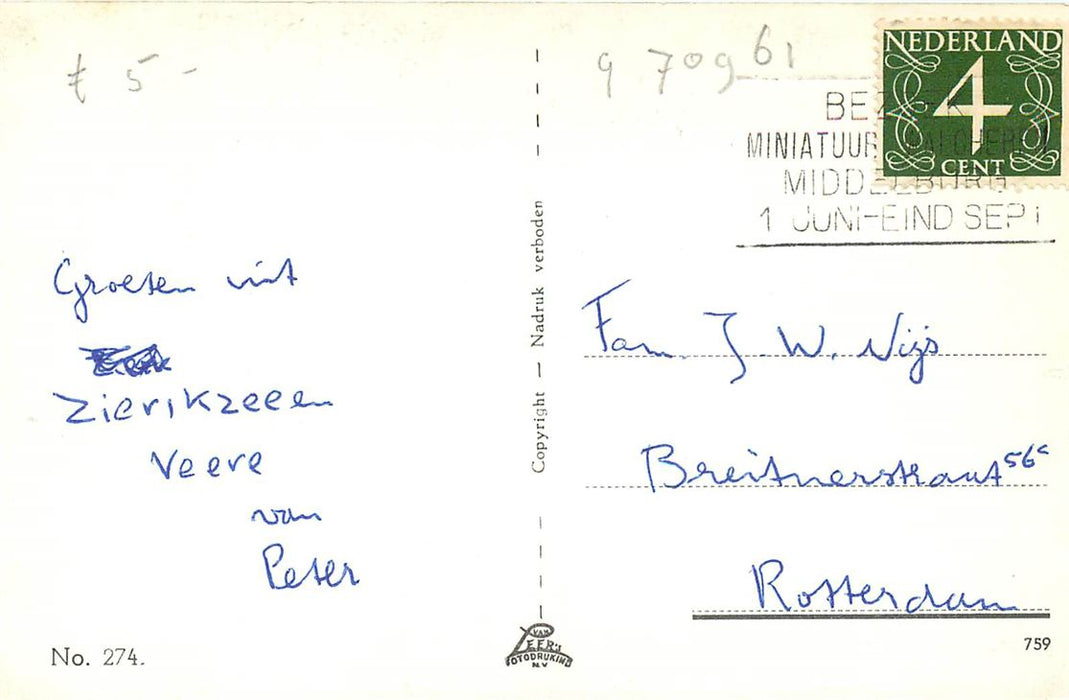 £ 5 -
9 70961
NEDERLAND
4
CENT
BEZOEK
MINIATUUR WALCHEREN
MIDDELBURG
1 JUNI-EIND SEPT
Groeten uit
Zierikzee en
Veere
van
Peter
Copyright — Nadruk verboden
Fam. J. W. Nijs
Breitnerstraat 56c
Rotterdam
No. 274.
VAN
LEER'S
FOTODRUKIND.
N.V.
759